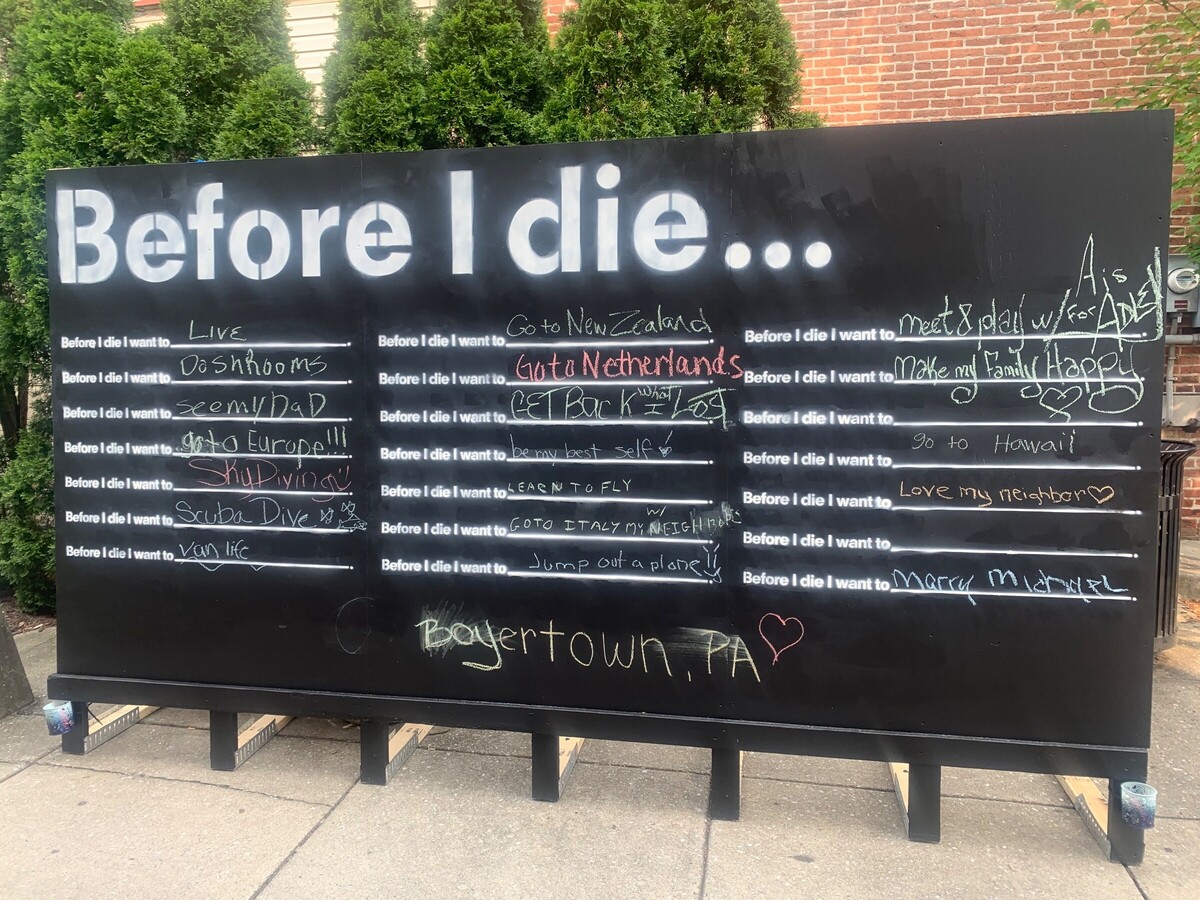 Before I die...
Before I die I want to Live.
Before I die I want to Do Shrooms.
Before I die I want to see my DaD.
Before I die I want to go to Europe!!!.
Before I die I want to SkyDiving.
Before I die I want to Scuba Dive.
Before I die I want to van life.
Before I die I want to Go to New Zealand.
Before I die I want to Go to Netherlands.
Before I die I want to GET BacK what I LOST.
Before I die I want to be my best self.
Before I die I want to LEARN TO FLY.
Before I die I want to GOTO ITALY w/ MY NEIGHBOR.
Before I die I want to Jump out a plane!!.
A is
for ADLEY
Before I die I want to meet & play w/.
Before I die I want to Make my Family Happy.
Before I die I want to.
Before I die I want to go to Hawaii.
Before I die I want to Love my neighbor.
Before I die I want to.
Before I die I want to Marry Michael.
Boyertown, PA